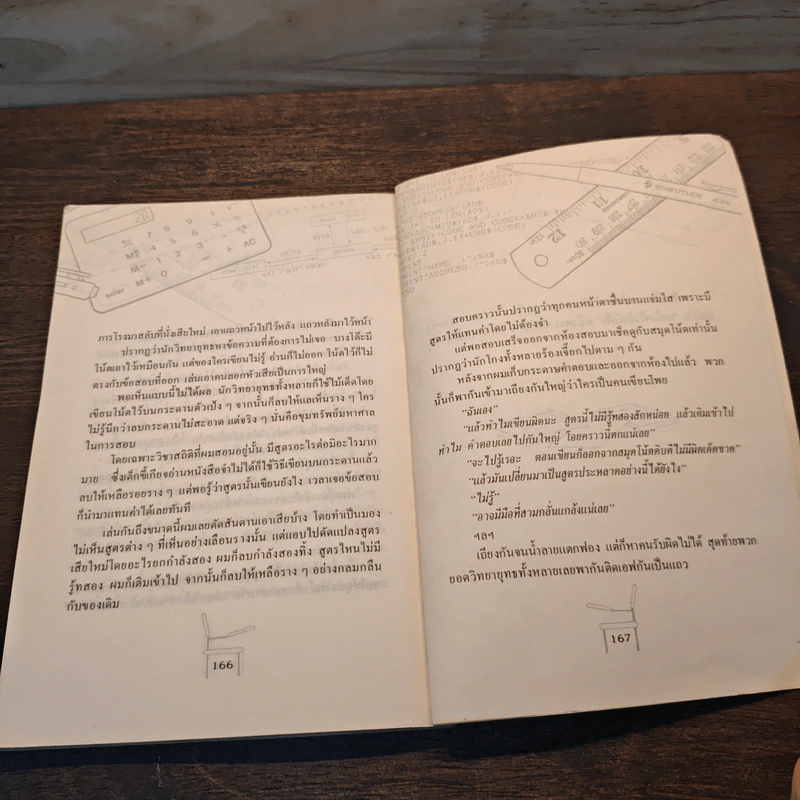 ภารโรงมาสลับที่นั่งเสียใหม่ เอาแถวหน้าไปไว้หลัง แถวหลังมาไว้หน้า
ปรากฏว่านักวิทยายุทธหาข้อความที่ต้องการไม่เจอ บางโต๊ะมี
โน้ตเอาไว้เหมือนกัน แต่ของใครเขียนไม่รู้ อ่านก็ไม่ออก โน้ตไว้ก็ไม่
ตรงกับข้อสอบที่ออก เล่นเอาคนลอกหัวเสียเป็นการใหญ่
พอเห็นแบบนี้ไม่ได้ผล นักวิทยายุทธทั้งหลายก็ใช้ไม้เด็ดโดย
เขียนโน้ตไว้บนกระดานตัวเป้ง ๆ จากนั้นก็ลบให้แลเห็นราง ๆ ใคร
ไม่รู้นึกว่าลบกระดานไม่สะอาด แต่จริง ๆ นั่นคือขุมทรัพย์มหาศาล
ในการสอบ
โดยเฉพาะวิชาสถิติที่ผมสอนอยู่นั้น มีสูตรอะไรต่อมิอะไรมาก
มาย ซึ่งเด็กขี้เกียจอ่านหนังสือจำไม่ได้ก็ใช้วิธีเขียนบนกระดานแล้ว
ลบให้เหลือรอยราง ๆ แต่พอรู้ว่าสูตรนั้นเขียนยังไง เวลาเจอข้อสอบ
ก็นำมาแทนค่าได้เลยทันที
เล่นกันถึงขนาดนี้ผมเลยดัดสันดานเอาเสียบ้าง โดยทำเป็นมอง
ไม่เห็นสูตรต่าง ๆ ที่เห็นอย่างเลือนรางนั้น แต่แอบไปดัดแปลงสูตร
เสียใหม่โดยอะไรยกกำลังสอง ผมก็ลบกำลังสองทิ้ง สูตรไหนไม่มี
รู้ทสอง ผมก็เติมเข้าไป จากนั้นก็ลบให้เหลือราง ๆ อย่างกลมกลืน
กับของเดิม
166
STAEDTLER
สอบคราวนั้นปรากฏว่าทุกคนหน้าตาชื่นบานแจ่มใส เพราะมี
สูตรให้แทนค่าโดยไม่ต้องจำ
แต่พอสอบเสร็จออกจากห้องสอบมาเช็คดูกับสมุดโน้ตเท่านั้น
ปรากฏว่านักโกงทั้งหลายร้องเจี๊ยกไปตาม ๆ กัน
หลังจากผมเก็บกระดาษคำตอบและออกจากห้องไปแล้ว พวก
นั้นก็พากันเข้ามาเถียงกันใหญ่ว่าใครเป็นคนเขียนโพย
“ฉันเอง”
“แล้วทำไมเขียนผิดนะ สูตรนี้ไม่มีรู้ทสองสักหน่อย แล้วเติมเข้าไป
ทำไม คำตอบเลยไปกันใหญ่ โอยคราวนี้ตกแน่เลย”
“จะไปรู้เรอะ ตอนเขียนก็ลอกจากสมุดโน้ตดิบดีไม่มีผิดเด็ดขาด”
“แล้วมันเปลี่ยนมาเป็นสูตรประหลาดอย่างนี้ได้ยังไง”
“ไม่รู้”
“อาจมีมือที่สามกลั่นแกล้งแน่เลย”
ฯลฯ
เถียงกันจนน้ำลายแตกฟอง แต่ก็หาคนรับผิดไม่ได้ สุดท้ายพวก
ยอดวิทยายุทธทั้งหลายเลยพากันติดเอฟกันเป็นแถว
167